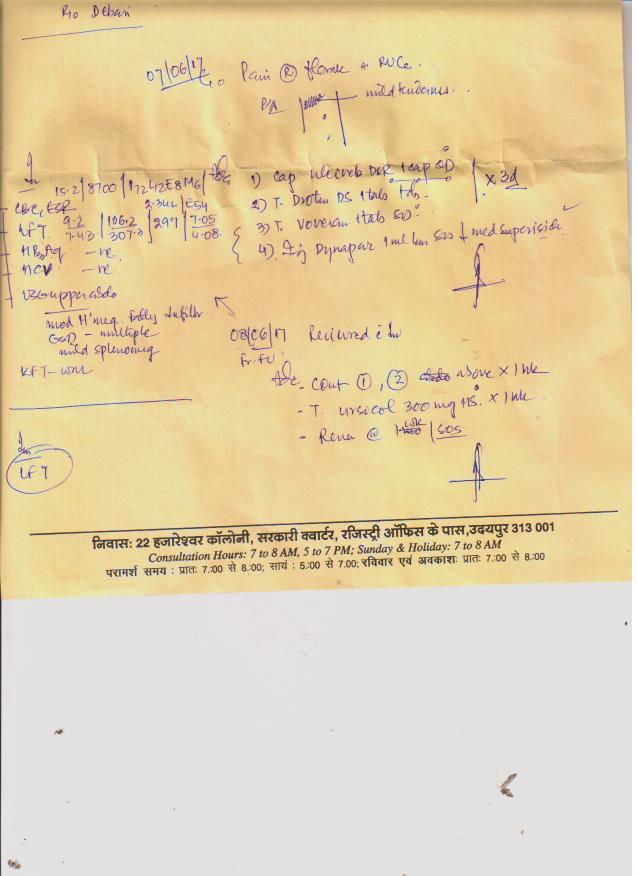 R/o Debari
07/06/17
c/o Pain (R) flank + RUQ
P/A mild tenderness
Adv
15.2 | 8700 |
CBC, ESR 2.34L | E54
LFT. 9.2 / 7.43 | 106.2 / 307.3 | 297 | 7.05 / 4.08
HBsAg -ve
HCV -ve
USG upper abdo
mod H'meg. Fatty Infiltr
GBD - multiple
mild splenomeg
KFT - WNL
1) Cap DSR 1 cap OD
2) T. Drotin DS 1 tab tds
3) T. Voveran 1 tab SOS
4) Inj Dynapar 1 ml im SOS med supervision
x 3d
08/06/17 Reviewed
Adv - Cont (1), (2) above x 1 wk
- T. Ursicol 300 mg x 1 wk
- Review @ wk / SOS
LFT
निवास: 22 हजारेश्वर कॉलोनी, सरकारी क्वार्टर, रजिस्ट्री ऑफिस के पास,उदयपुर 313 001
Consultation Hours: 7 to 8 AM, 5 to 7 PM; Sunday & Holiday: 7 to 8 AM
परामर्श समय : प्रातः 7.00 से 8.00; सायं : 5.00 से 7.00; रविवार एवं अवकाशः प्रातः 7.00 से 8.00